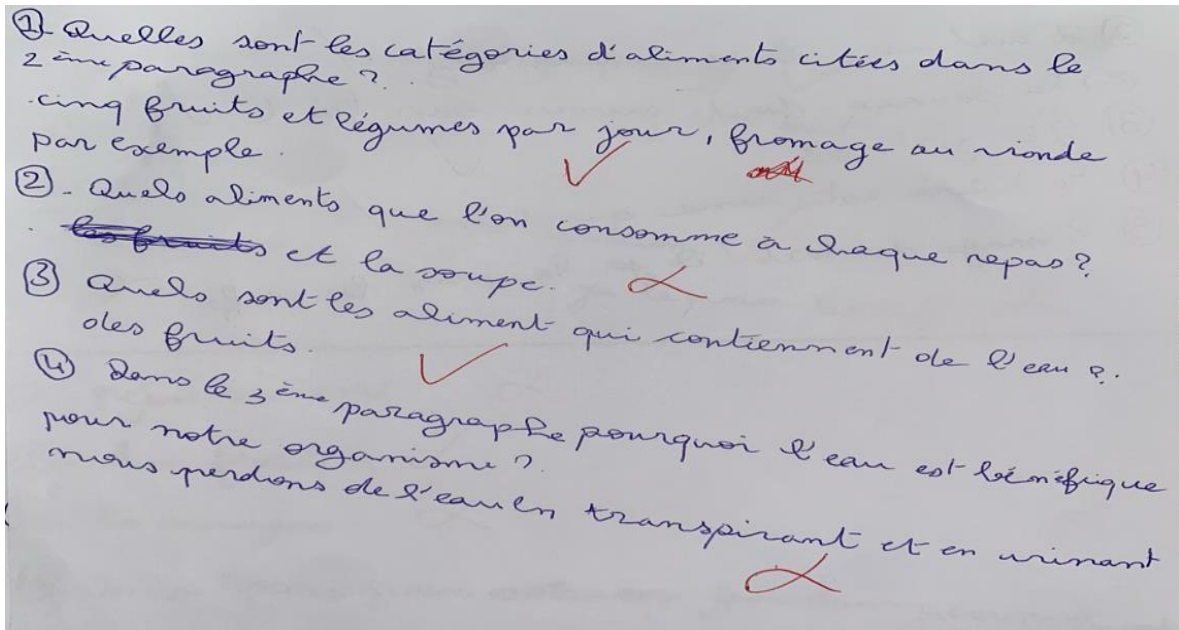 ①- Quelles sont les catégories d'aliments citées dans le
2ème paragraphe ?
. cinq fruits et légumes par jour, fromage au vionde
par exemple.
② - Quels aliments que l'on consomme à chaque repas ?
. les fruits et la soupe.
③ Quels sont les aliment qui contiennent de l'eau ?.
des fruits.
④ Dans le 3ème paragraphe pourquoi l'eau est bénéfique
pour notre organisme ?
nous perdons de l'eau en transpirant et en urinant